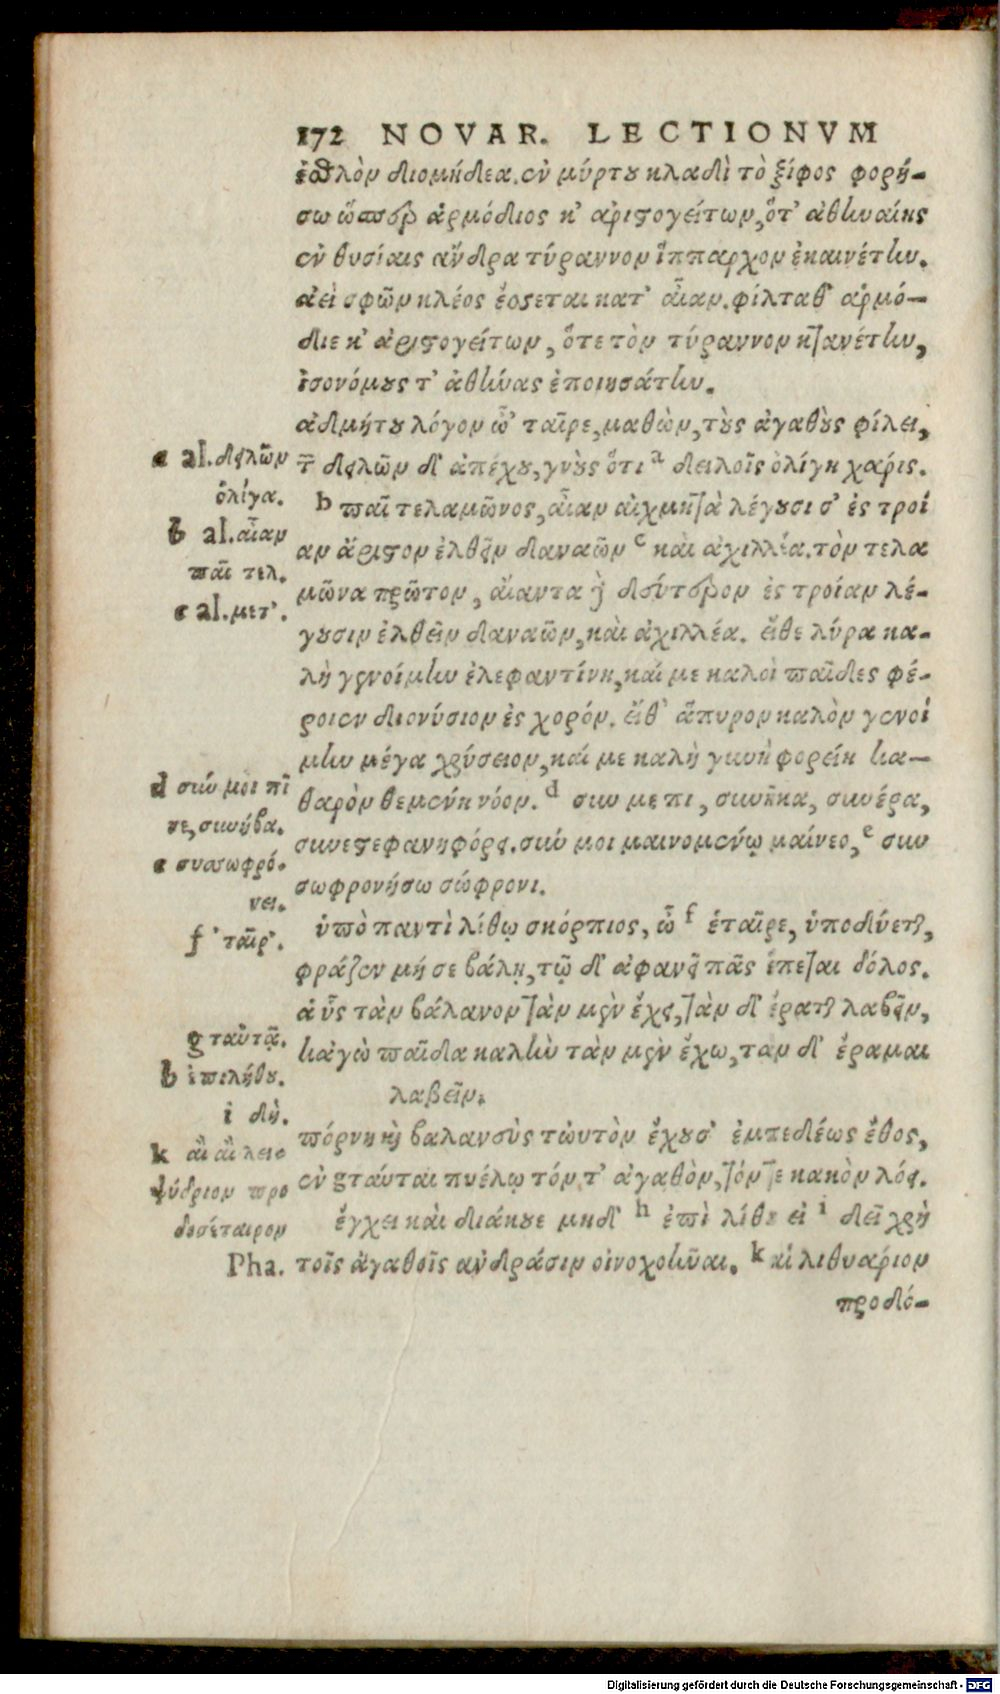 172 NOVAR. LECTIONVM
ἐσθλὸν διομήδεα. ἐν μύρτου κλαδὶ τὸ ξίφος φορή-
σω ὥσπερ ἁρμόδιος κ' ἀριστογείτων, ὅτ' ἀθηναίης
ἐν θυσίαις ἄνδρα τύραννον ἵππαρχον ἐκαινέτην.
αἰεὶ σφῶν κλέος ἔσσεται κατ' αἶαν. φίλταθ' ἁρμό-
διε κ' ἀριστογείτων, ὅτε τὸν τύραννον κτανέτην,
ἰσονόμους τ' ἀθήνας ἐποιησάτην.
ἀδμήτου λόγον ὦ' ταῖρε, μαθὼν, τοὺς ἀγαθοὺς φίλει,
τ̄ δειλῶν δ' ἀπέχου, γνοὺς ὅτι a δειλοῖς ὀλίγη χάρις.
b παῖ τελαμῶνος, αἶαν αἰχμητὰ λέγουσι σ' ἐς τροί
αν ἄριστον ἐλθεῖν δαναῶν c καὶ ἀχιλλέα. τὸν τελα
μῶνα πρῶτον, αἴαντα δὲ δεύτερον ἐς τροίαν λέ-
γουσιν ἐλθεῖν δαναῶν, καὶ ἀχιλλέα. εἴθε λύρα κα-
λὴ γενοίμην ἐλεφαντίνη, καί με καλοὶ παῖδες φέ-
ροιεν διονύσιον ἐς χορόν. εἴθ' ἄπυρον καλὸν γενοί
μην μέγα χρύσειον, καί με καλὴ γυνὴ φορείη κα-
θαρὸν θεμένη νόον. d συν με πι, συνηκα, συνέρα,
συνεστεφανηφόρει. σύν μοι μαινομένῳ μαίνεο, e συν
σωφρονήσω σώφρονι.
ὑπὸ παντὶ λίθῳ σκόρπιος, ὦ f ἑταῖρε, ὑποδύεται,
φράζευ μή σε βάλῃ, τῷ δ' ἀφανεῖ πᾶς ἕπεται δόλος.
ἁ ὗς τὰν βάλανον τὰν μὲν ἔχει, τὰν δ' ἔραται λαβεῖν,
κἀγὼ παῖδα καλὴν τὰν μὲν ἔχω, ταν δ' ἔραμαι
λαβεῖν.
πόρνη καὶ βαλανεὺς τὠυτὸν ἔχουσ' ἐμπεδέως ἔθος,
ἐν g ταύται πυέλῳ τόν τ' ἀγαθὸν, τόν τε κακὸν λόει.
ἔγχει καὶ διάκονε μηδ' h ἐπὶ λίθου εἰ i δεῖ χρὴ
τοῖς ἀγαθοῖς ἀνδράσιν οἰνοχοῆναι. k αἱ λιθυαρίον
προδό-
a al. δειλῶν
ὀλίγα.
b al. αἶαν
παῖ τελ.
c al. μετ'.
d σύν μοι πῖ
νε, συνήβα.
e συσσωφρό-
νει.
f 'ταῖρ'.
g ταὐτᾷ.
h ἐπιλήθου.
i δὴ.
k αἲ αἲ λει-
ψύδριον προ
δοσέταιρον
Pha.
Digitalisierung gefördert durch die Deutsche Forschungsgemeinschaft - DFG